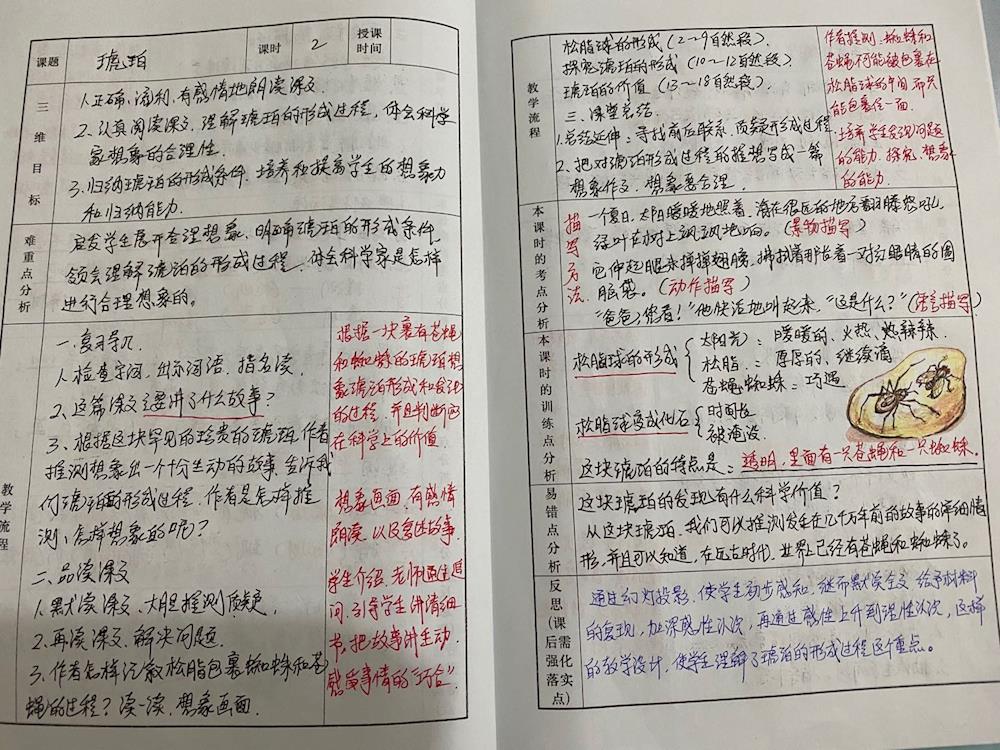 课题
琥珀
课时
2
授课时间
三维目标
1.正确、流利、有感情地朗读课文.
2.认真阅读课文,理解琥珀的形成过程,体会科学
家想象的合理性.
3.归纳琥珀的形成条件.培养和提高学生的想象力
和归纳能力.
难重点分析
启发学生展开合理想象,明确琥珀的形成条件
领会理解琥珀的形成过程,体会科学家是怎样
进行合理想象的。
教学流程
一.复习导入
1.检查字词,出示词语,指名读.
2.这篇课文主要讲了什么故事?
3.根据这块罕见的珍贵的琥珀,作者
推测想象出一个十分生动的故事,告诉我
们琥珀的形成过程.作者是怎样推
测、怎样想象的呢?
二、品读课文
1.默读课文、大胆推测质疑.
2.再读课文,解决问题.
3.作者怎样记叙松脂包裹蜘蛛和苍
蝇的过程?读一读,想象画面.
根据一块裹有苍蝇
和蜘蛛的琥珀想
象琥珀形成和发现
的过程,并且判断它
在科学上的价值
想象画面,有感情
朗读,以及复述故事.
学生介绍,老师通过追
问,引导学生讲清细
节,把故事讲生动.
感受事情的"巧合".
教学流程
松脂球的形成(2~9自然段).
探究琥珀的形成(10~12自然段)
琥珀的价值(13~18自然段)
三.课堂总结
1.总结延伸:寻找前后联系,质疑形成过程
2.把对琥珀形成过程的推想写成一篇
想象作文.想象要合理.
作者推测:蜘蛛和
苍蝇可能被包裹在
松脂球的中间而只
能包裹住一面.
培养学生发现问题
的能力.探究、想象
的能力.
本课时的考点分析
描写方法
一个夏日,太阳暖暖地照着,海在很远的地方翻腾怒吼
绿叶在树上飒飒地响。(景物描写)
它伸起腿来掸掸翅膀,拂拭着那长着一对红眼睛的圆
脑袋。(动作描写)
"爸爸,你看!"他快活地叫起来,"这是什么?"(语言描写)
本课时的训练点分析
松脂球的形成
太阳光:暖暖的、火热、热辣辣
松脂:厚厚的、继续滴
苍蝇、蜘蛛:巧遇
松脂球变成化石
时间长
被淹没.
这块琥珀的特点是:透明,里面有一只苍蝇和一只蜘蛛.
易错点分析
这块琥珀的发现有什么科学价值?
从这块琥珀,我们可以推测发生在几千万年前的故事的详细情
形,并且可以知道,在远古时代,世界上已经有苍蝇和蜘蛛了。
反思(课后需强化落实点)
通过幻灯投影,使学生初步感知,继而默读全文,给予材料
的复现,加深感性认识,再通过感性上升到理性认识,这样
的教学设计,使学生理解了琥珀的形成过程这个重点。